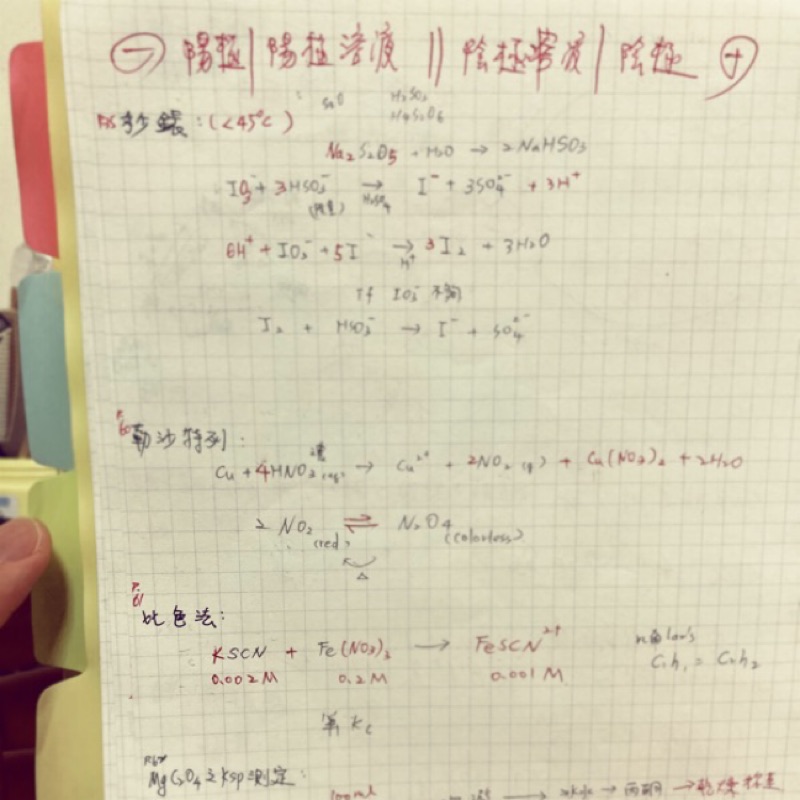 ⊖ 陽極 | 陽極溶液 || 陰極溶液 | 陰極 ⊕
秒錶:(<45°C)
Na₂S₂O₅ + H₂O → 2NaHSO₃
IO₃⁻ + 3HSO₃⁻ → I⁻ + 3SO₄²⁻ + 3H⁺
H₂SO₄
6H⁺ + IO₃⁻ + 5I⁻ → 3I₂ + 3H₂O
H⁺
If IO₃⁻ 不夠
I₂ + HSO₃⁻ → I⁻ + SO₄²⁻
P.60
勒沙特列:
濃
Cu + 4HNO₃(aq) → Cu²⁺ + 2NO₂(g) + Cu(NO₃)₂ + 2H₂O
2NO₂ ⇌ N₂O₄
(red) (colorless)
△
P.61
比色法:
KSCN + Fe(NO₃)₃ → FeSCN²⁺
0.002M 0.2M 0.001M
C₁h₁ = C₂h₂
算 Kc
MgC₂O₄之Ksp測定:
100ml → → 兩 → 乾燥 秤重